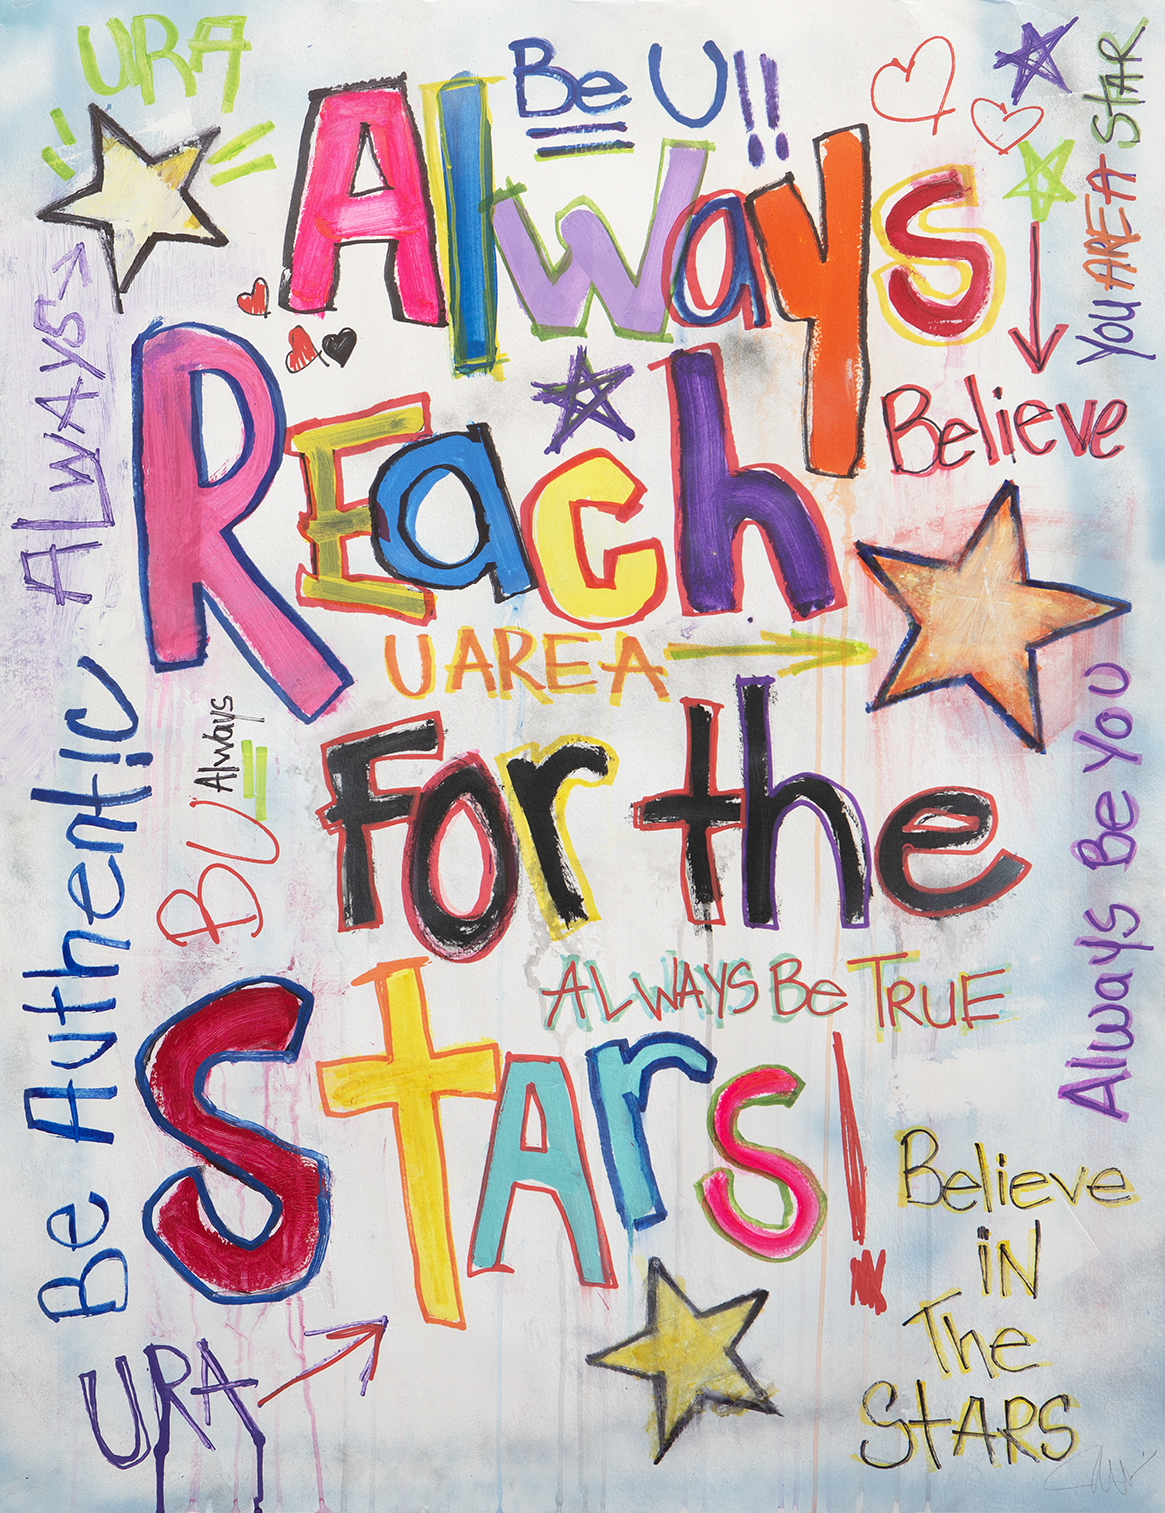 URA
Be U!!
YOU ARE A STAR
Always
ALWAYS
Believe
REach
U ARE A
For the
BU Always
Be Authentic
Always Be You
ALWAYS Be TRUE
Stars!
Believe
iN
The
STARS
URA